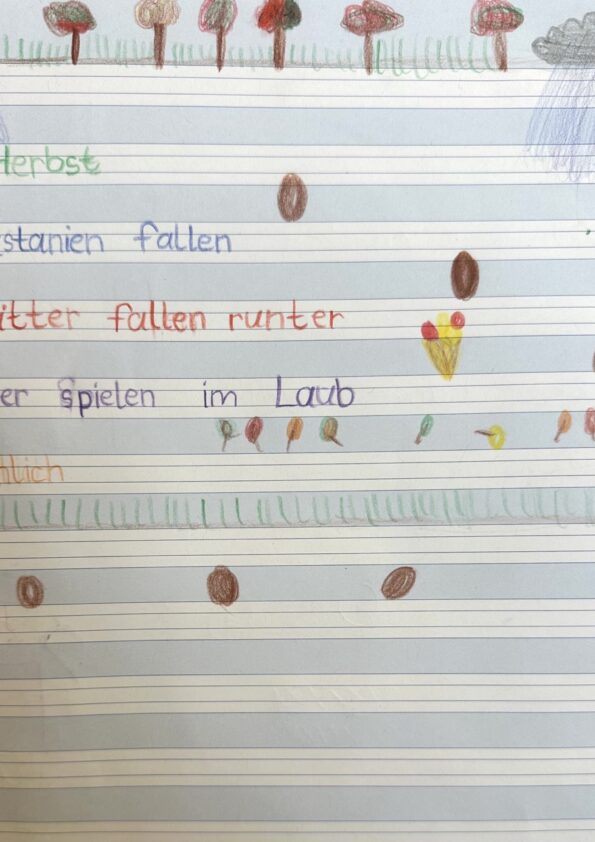 Herbst
stanien fallen
itter fallen runter
er spielen im Laub
hlich